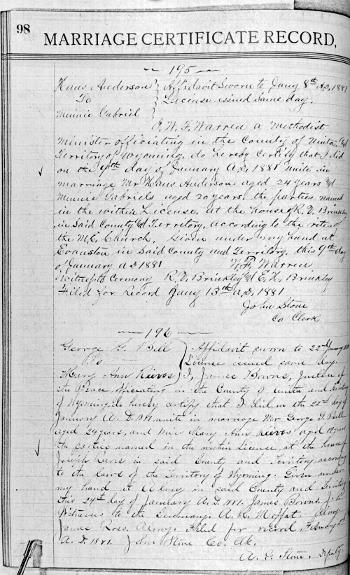 98
MARRIAGE CERTIFICATE RECORD,
195
Hans Anderson } Affidavit Sworn to Jany 8th AD, 1881
To } License issued same day.
Minnie Gabriel
I, W. F. Warren a Methodist
Minister officiating in the County of Uinta
Territory of Wyoming, do hereby certify that I did
on the 9th day of January A.D. 1881 unite in
marriage Mr. Hans Anderson aged 24 years &
Minnie Gabriels aged 20 years, the parties named
in the within License, at the House of R. V. Brinkley
in said County & Territory, according to the rites of
the M. E. Church. Given under my hand at
Evanston in said County and Territory, this 9th day
of January A.D 1881 W. F. Warren
Witness to Ceremony R. V. Brinkley & E. H. Brinkley
Filed for Record Jany 13th A.D. 1881
John Stone
Co Clerk
196
George G. Bell } Affidavit sworn to 22d
To } License issued same day.
Mary Ann } I, James Downs, Justice of
the Peace in the County of Uinta and
of Wyoming, do hereby certify that I did on the 22d day of
January A. D. unite in marriage Mr. George G. Bell
aged 24 years, and Miss Mary Ann aged
the parties named in the within license, at the house of
in said County and Territory according
to the laws of the Territory of Wyoming. Given under
my hand at Almy in said County and Territory
this 24th day of January A. D. 1881. James Downs J. P.
Witness to the A. H. Moffat, Almy
James Almy. Filed for record
A. D. 1881. John Stone Co. Clk.
A. V. Stone, Deputy